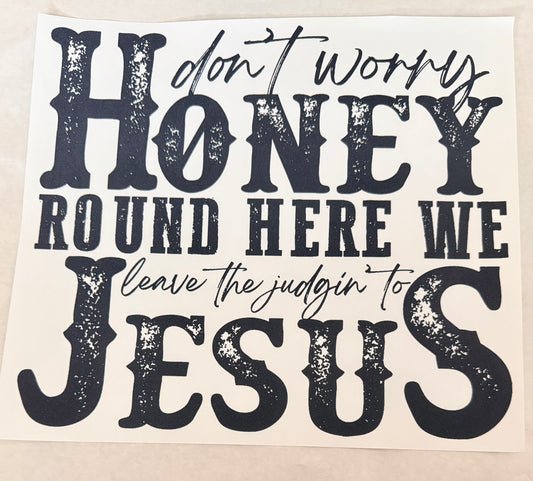 don't worry
HONEY
ROUND HERE WE
leave the judgin' to
JESUS